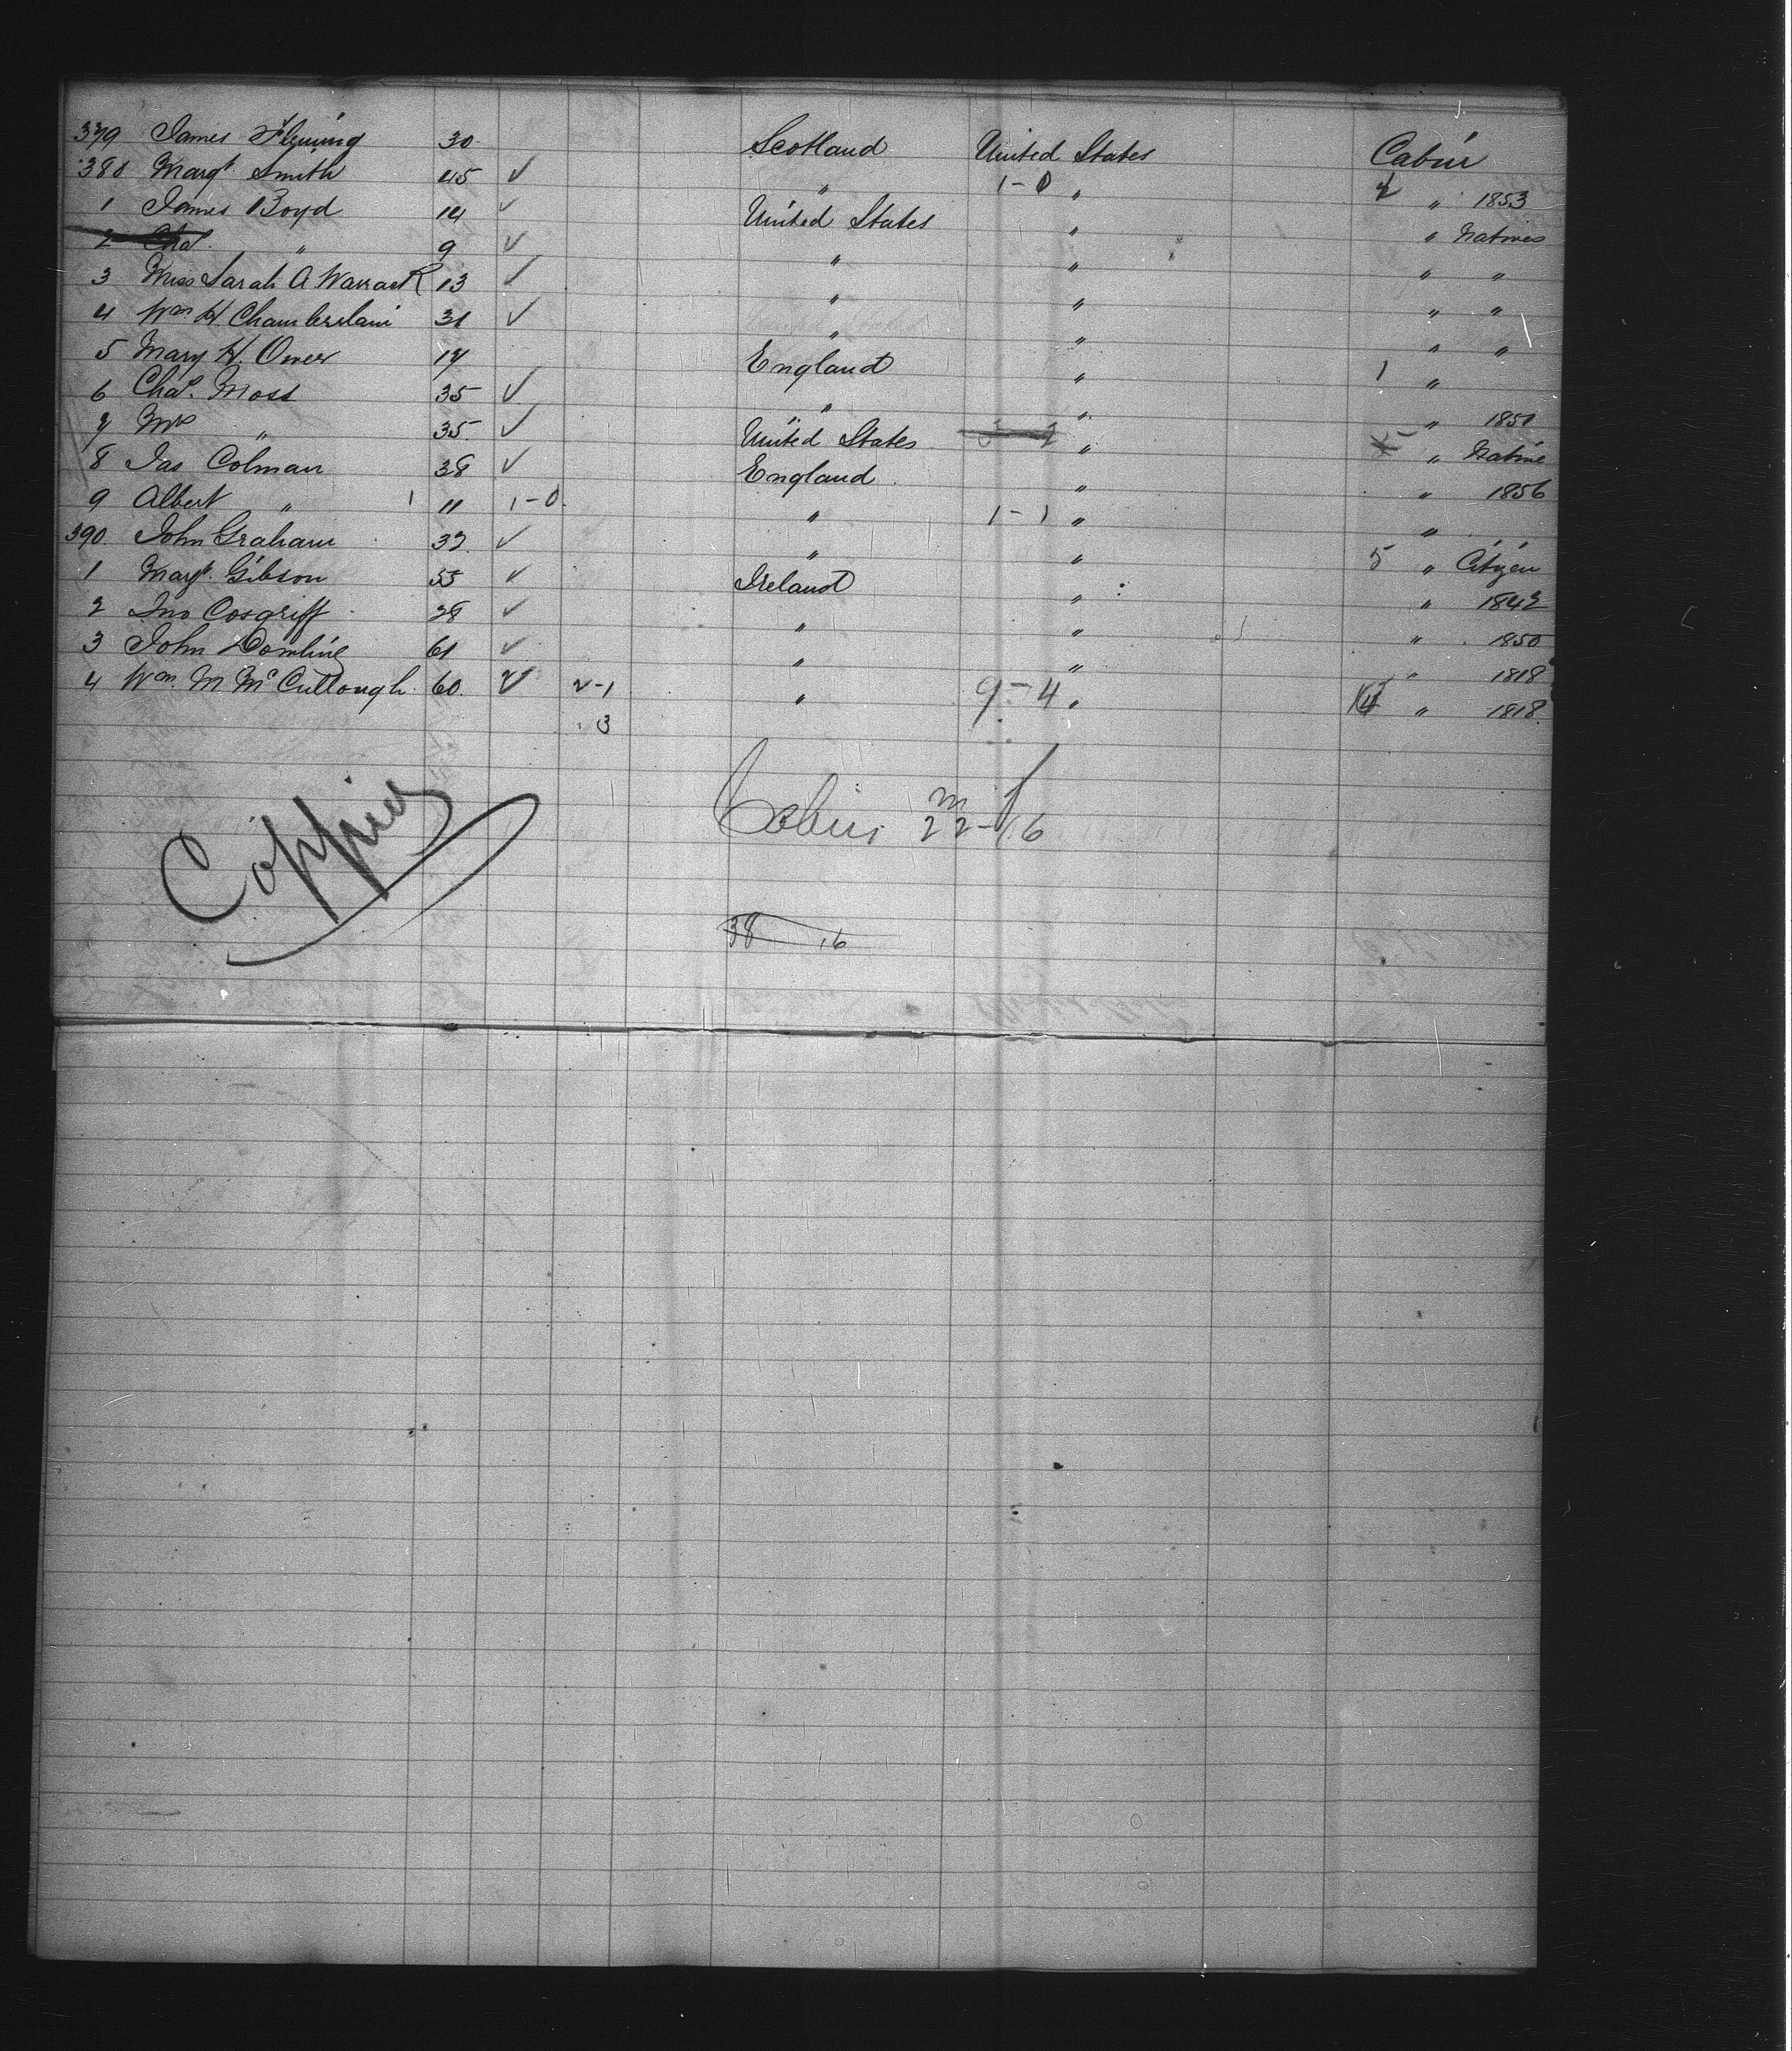 379 James Fleming 30. Scotland United States Cabin
380 Margt. Smith 45 ✓ " 1-0 " 2 " 1853
1 James Boyd 14 ✓ United States " " Natives
2 Chas. " 9 ✓ " " " "
3 Miss Sarah A Warrack 13 ✓ " " " "
4 Wm H. Chamberlain 31 ✓ " " " "
5 Mary H. Ower 17 England " 1 "
6 Chas. Moss 35 ✓ " " " 1851
7 Mrs " 35. ✓ United States " " Native
8 Jas Colman 38 ✓ England " " 1856
9 Albert " 1 11 1-0. " 1-1 " "
390. John Graham 32. ✓ " " 5 " Citizen
1 Margt. Gibson 55 ✓ Ireland " " 1842
2 Jno Cosgriff 28 ✓ " " " 1850
3 John Dowling 61 ✓ " " " 1818
4 Wm. M McCullough 60. ✓ 2-1 " 9-4 " " 1818.
3
Cabin m f
22-16
Coppied
38 16